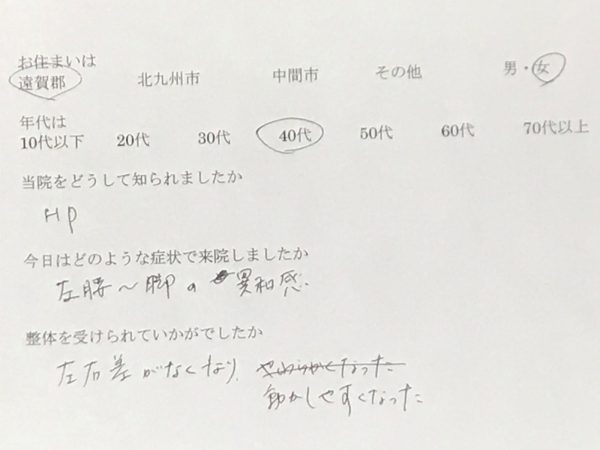 お住まいは
遠賀郡 北九州市 中間市 その他 男・女
年代は
10代以下 20代 30代 40代 50代 60代 70代以上
当院をどうして知られましたか
HP
今日はどのような症状で来院しましたか
左腰〜脚の異和感
整体を受けられていかがでしたか
左右差がなくなり、やわらかくなった
動かしやすくなった